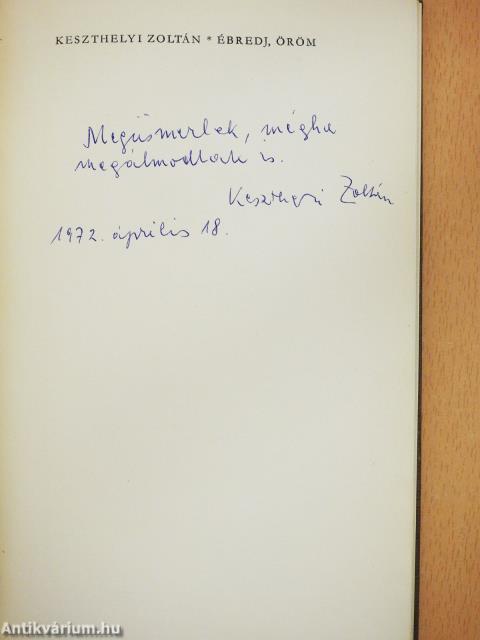 KESZTHELYI ZOLTÁN * ÉBREDJ, ÖRÖM
Megismerlek, mégha
megálmodtak is.
Keszthelyi Zoltán
1972. április 18.
Antikvárium.hu